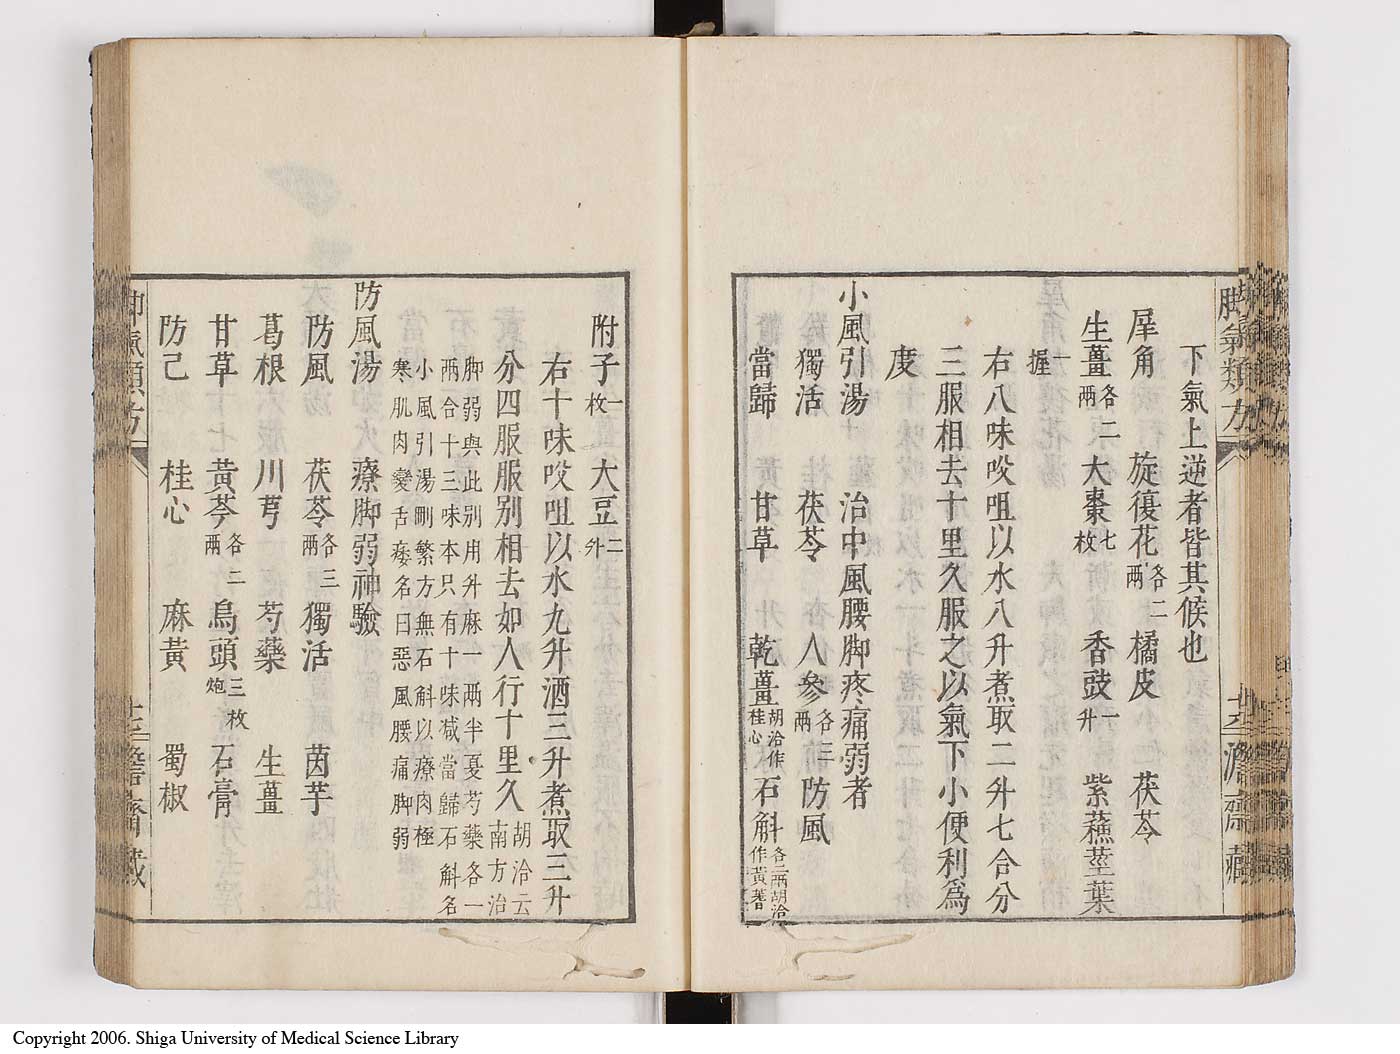 下氣上逆者皆其候也
犀角 旋復花各二兩 橘皮 茯苓
生薑各二兩 大棗七枚 香豉一升 紫蘓莖葉
一握
右八味㕮咀以水八升煮取二升七合分
三服相去十里久服之以氣下小便利爲
度
小風引湯 治中風腰脚疼痛弱者
獨活 茯苓 人參各三兩 防風
當歸 甘草 乾薑胡洽作桂心 石斛各二兩胡洽作黃耆
脚氣類方
附子一枚 大豆二升
右十味㕮咀以水九升酒三升煮取三升
分四服服别相去如人行十里久胡洽云南方治
脚弱與此别用升麻一兩半憂芍藥各一
兩合十三味本只有十味減當歸石斛名
小風引湯刪繁方無石斛以療肉極
寒肌肉變舌痿名曰惡風腰痛脚弱
防風湯 療脚弱神驗
防風 茯苓各三兩 獨活 茵芋
葛根 川芎 芍藥 生薑
甘草 黃芩各二兩 烏頭三枚炮 石膏
防己 桂心 麻黃 蜀椒
Copyright 2006. Shiga University of Medical Science Library